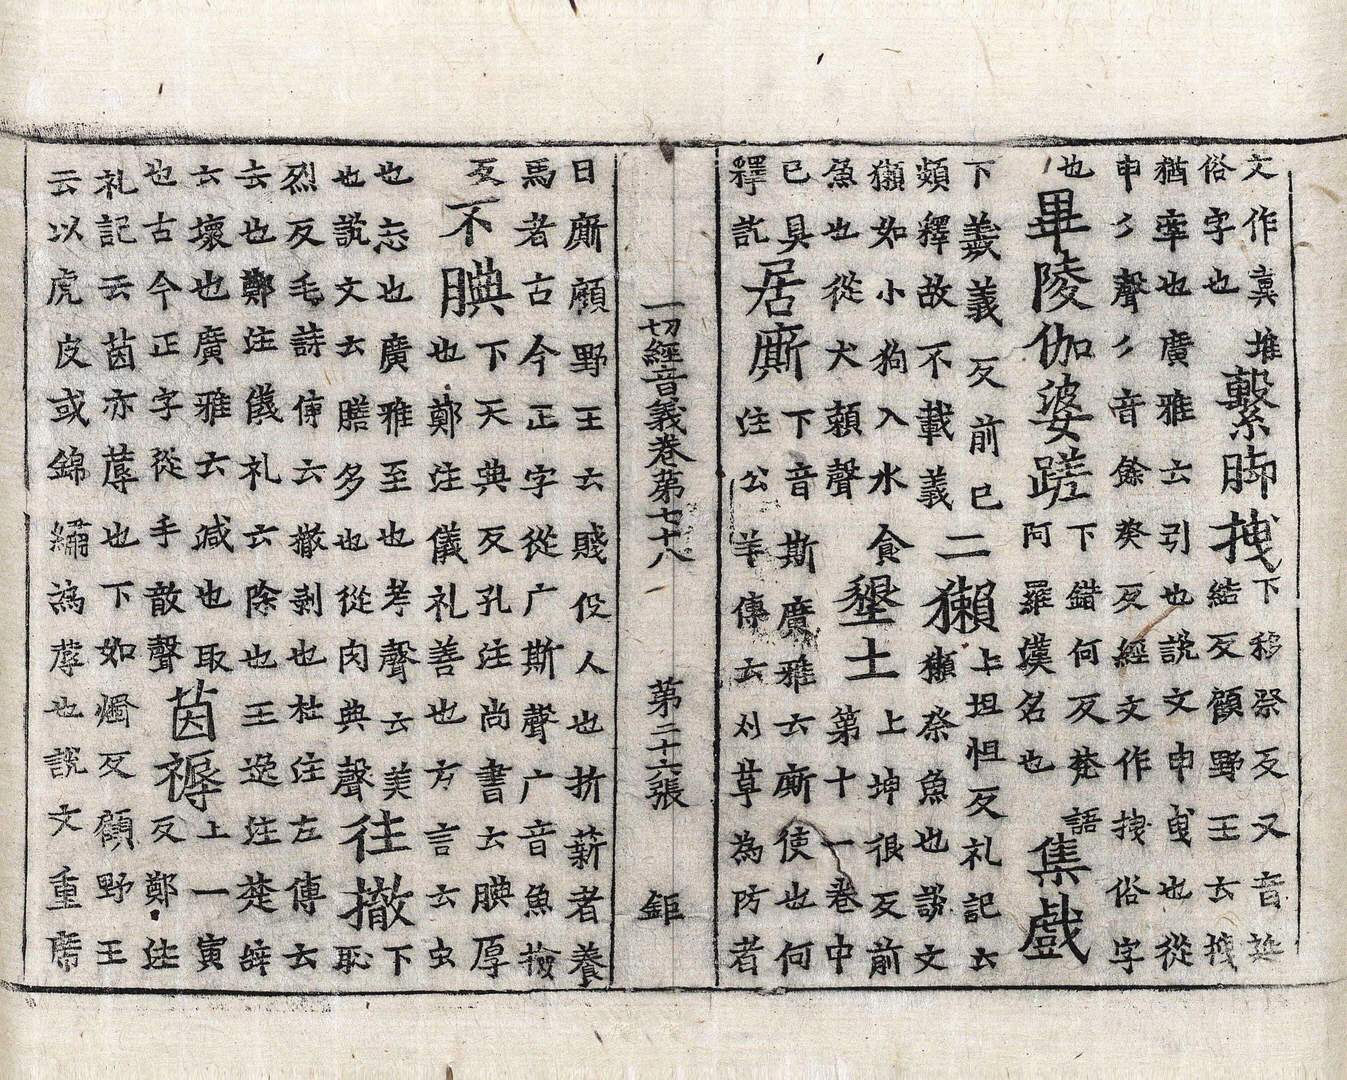 文作㝠堆
俗字也
繫脚拽
下移祭反又音延
結反顧野王云拽
猶牽也廣雅云引也說文申曳也從
申𠂆聲𠂆音餘癸反經文作拽俗字
也
畢陵伽婆蹉
下錯何反梵語
阿羅漢名也
集戲
下羲義反前已
頻釋故不載義
二獺
上坦怛反礼記云
獺祭魚也說文
獺如小狗入水食
魚也從犬賴聲
墾土
上坤很反前
第十一卷中
已具
釋訖
居廝
下音斯廣雅云廝使也何
注公羊傳云刈草為防者
一切經音義卷第七十八 第二十六張 鉅
日廝顧野王云賤役人也折薪者養
馬者古今正字從广斯聲广音魚撿
反
不腆
下天典反孔注尚書云腆厚
也鄭注儀礼善也方言云虫
也忘也廣雅至也考聲云美
也說文云膳多也從肉典聲
往撤
下
恥
烈反毛詩傳云撤剥也杜注左傳云
去也鄭注儀礼云除也王逸注楚辞
云壞也廣雅云減也取
也古今正字從手散聲
茵褥
上一寅
反鄭注
礼記云茵亦蓐也下如燭反顧野王
云以虎皮或錦繡為蓐也說文重席